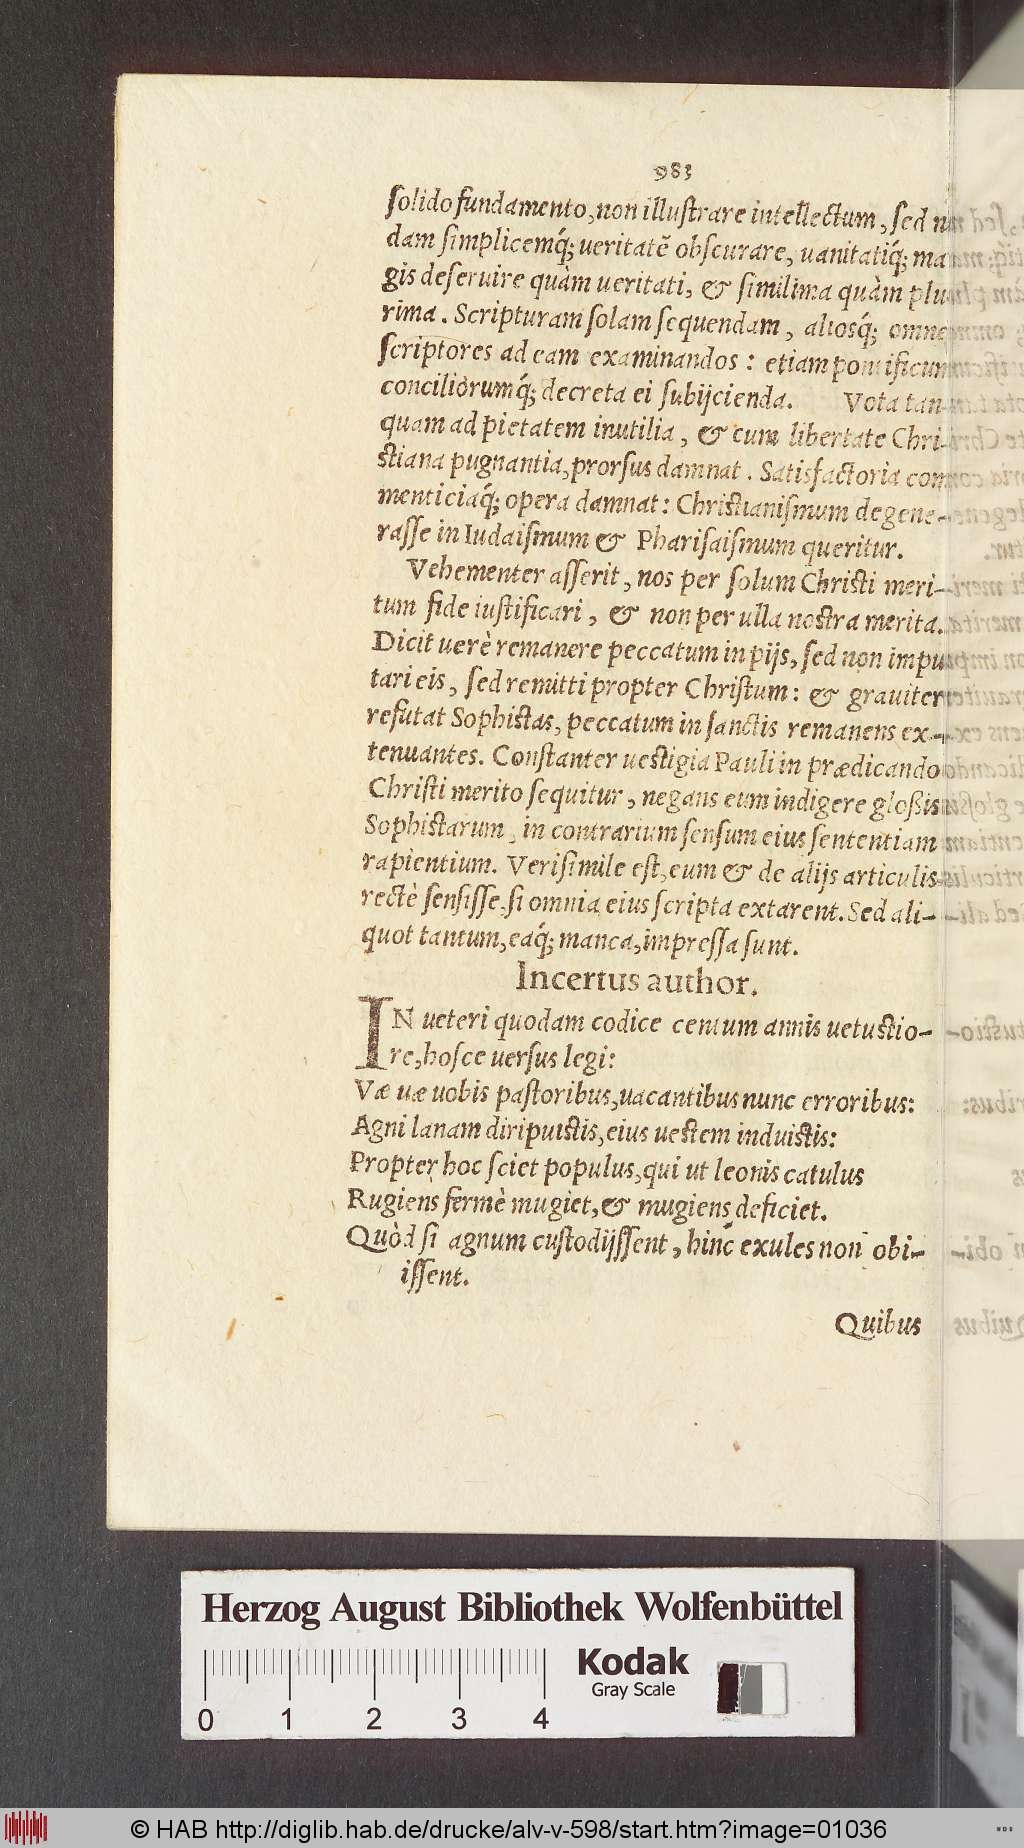 983
solido fundamento, non illustrare intellectum, sed nu
dam simplicemq́; ueritatē obscurare, uanitatiq́; ma
gis deseruire quàm ueritati, & similima quàm plu
rima. Scripturam solam sequendam, aliosq́; omne
scriptores ad eam examinandos: etiam pontificum
conciliorumq́; decreta ei subijcienda. Vota tan-
quam ad pietatem inutilia, & cum libertate Chri-
stiana pugnantia, prorsus damnat. Satisfactoria com
menticiaq́; opera damnat: Christianismum degene-
rasse in Iudaismum & Pharisaismum queritur.
Vehementer asserit, nos per solum Christi meri-
tum fide iustificari, & non per ulla nostra merita.
Dicit uerè remanere peccatum in pijs, sed non impu
tari eis, sed remitti propter Christum: & grauiter
refutat Sophistas, peccatum in sanctis remanens ex-
tenuantes. Constanter uestigia Pauli in prædicando
Christi merito sequitur, negans eum indigere glossis
Sophistarum, in contrarium sensum eius sententiam
rapientium. Verisimile est, eum & de alijs articulis
rectè sensisse, si omnia eius scripta extarent. Sed ali-
quot tantum, eaq́; manca, impressa sunt.
Incertus author.
IN ueteri quodam codice centum annis uetustio-
re, hosce uersus legi:
Væ uæ uobis pastoribus, uacantibus nunc erroribus:
Agni lanam diripuistis, eius uestem induistis:
Propter hoc sciet populus, qui ut leonis catulus
Rugiens fermè mugiet, & mugiens deficiet.
Quòd si agnum custodijssent, hinc exules non obi-
issent.
Quibus
Herzog August Bibliothek Wolfenbüttel
Kodak
Gray Scale
0 1 2 3 4
© HAB http://diglib.hab.de/drucke/alv-v-598/start.htm?image=01036